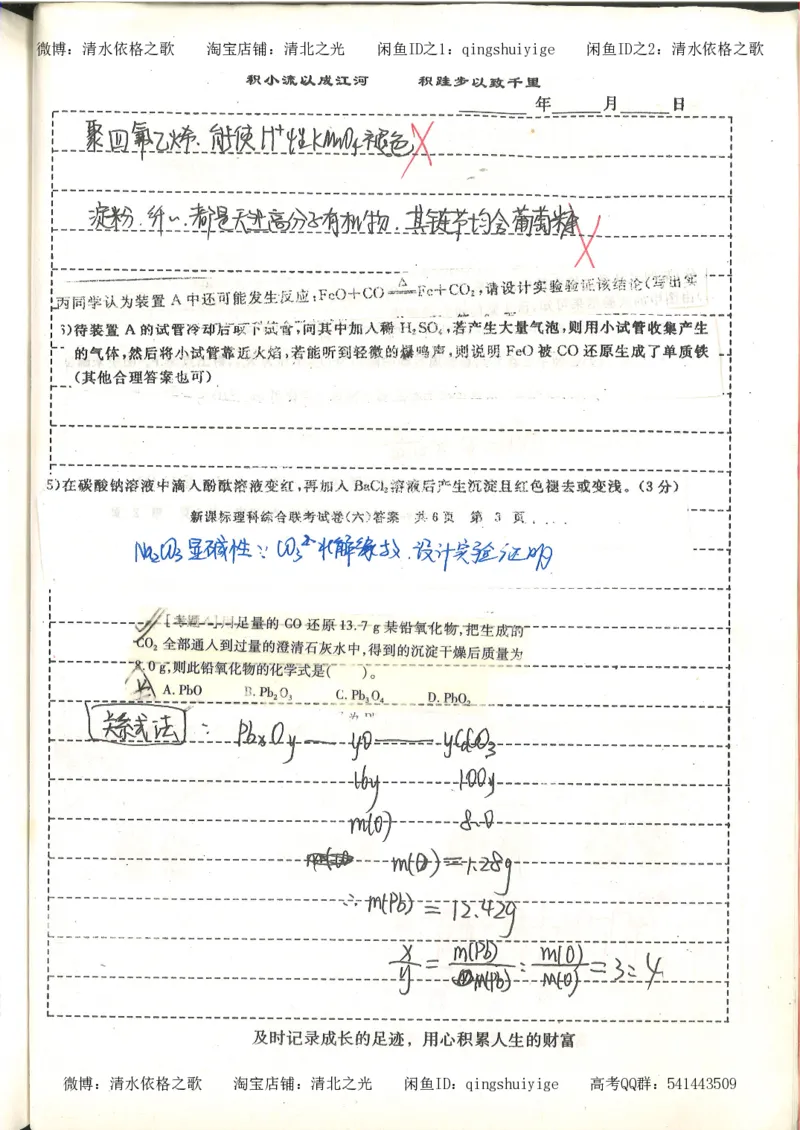 微博：清水依格之歌 淘宝店铺：清北之光 闲鱼ID之1：qingshuiyige 闲鱼ID之2：清水依格之歌
积小流以成江河 积跬步以致千里
年 月 日
聚四氟乙烯、能使H⁺性KMnO₄褪色
淀粉、纤～、都是天然高分子有机物、其链节均含葡萄糖
丙同学认为装置 A 中还可能发生反应：FeO＋CO △ Fe＋CO₂，请设计实验验证该结论(写出实
)待装置 A 的试管冷却后取下试管，向其中加入稀 H₂SO₄，若产生大量气泡，则用小试管收集产生
的气体，然后将小试管靠近火焰，若能听到轻微的爆鸣声，则说明 FeO 被 CO 还原生成了单质铁
(其他合理答案也可)
5)在碳酸钠溶液中滴入酚酞溶液变红，再加入 BaCl₂溶液后产生沉淀且红色褪去或变浅。(3 分)
新课标理科综合联考试卷(六)答案 共 6 页 第 3 页
Na₂CO₃显碱性∵CO₃²⁻水解缘故、设计实验证明
足量的 CO 还原 13.7 g 某铅氧化物，把生成的
CO₂ 全部通入到过量的澄清石灰水中，得到的沉淀干燥后质量为
8.0 g，则此铅氧化物的化学式是( )。
A. PbO B. Pb₂O₃ C. Pb₃O₄ D. PbO₂
关系式法：PbxOy — yO — yCaCO₃
16y 100y
m(O) 8.0
m(O)＝1.28g
∴m(Pb)＝12.42g
x/y＝m(Pb)/M(Pb)：m(O)/M(O)＝3：4
及时记录成长的足迹，用心积累人生的财富
微博：清水依格之歌 淘宝店铺：清北之光 闲鱼ID：qingshuiyige 高考QQ群：541443509